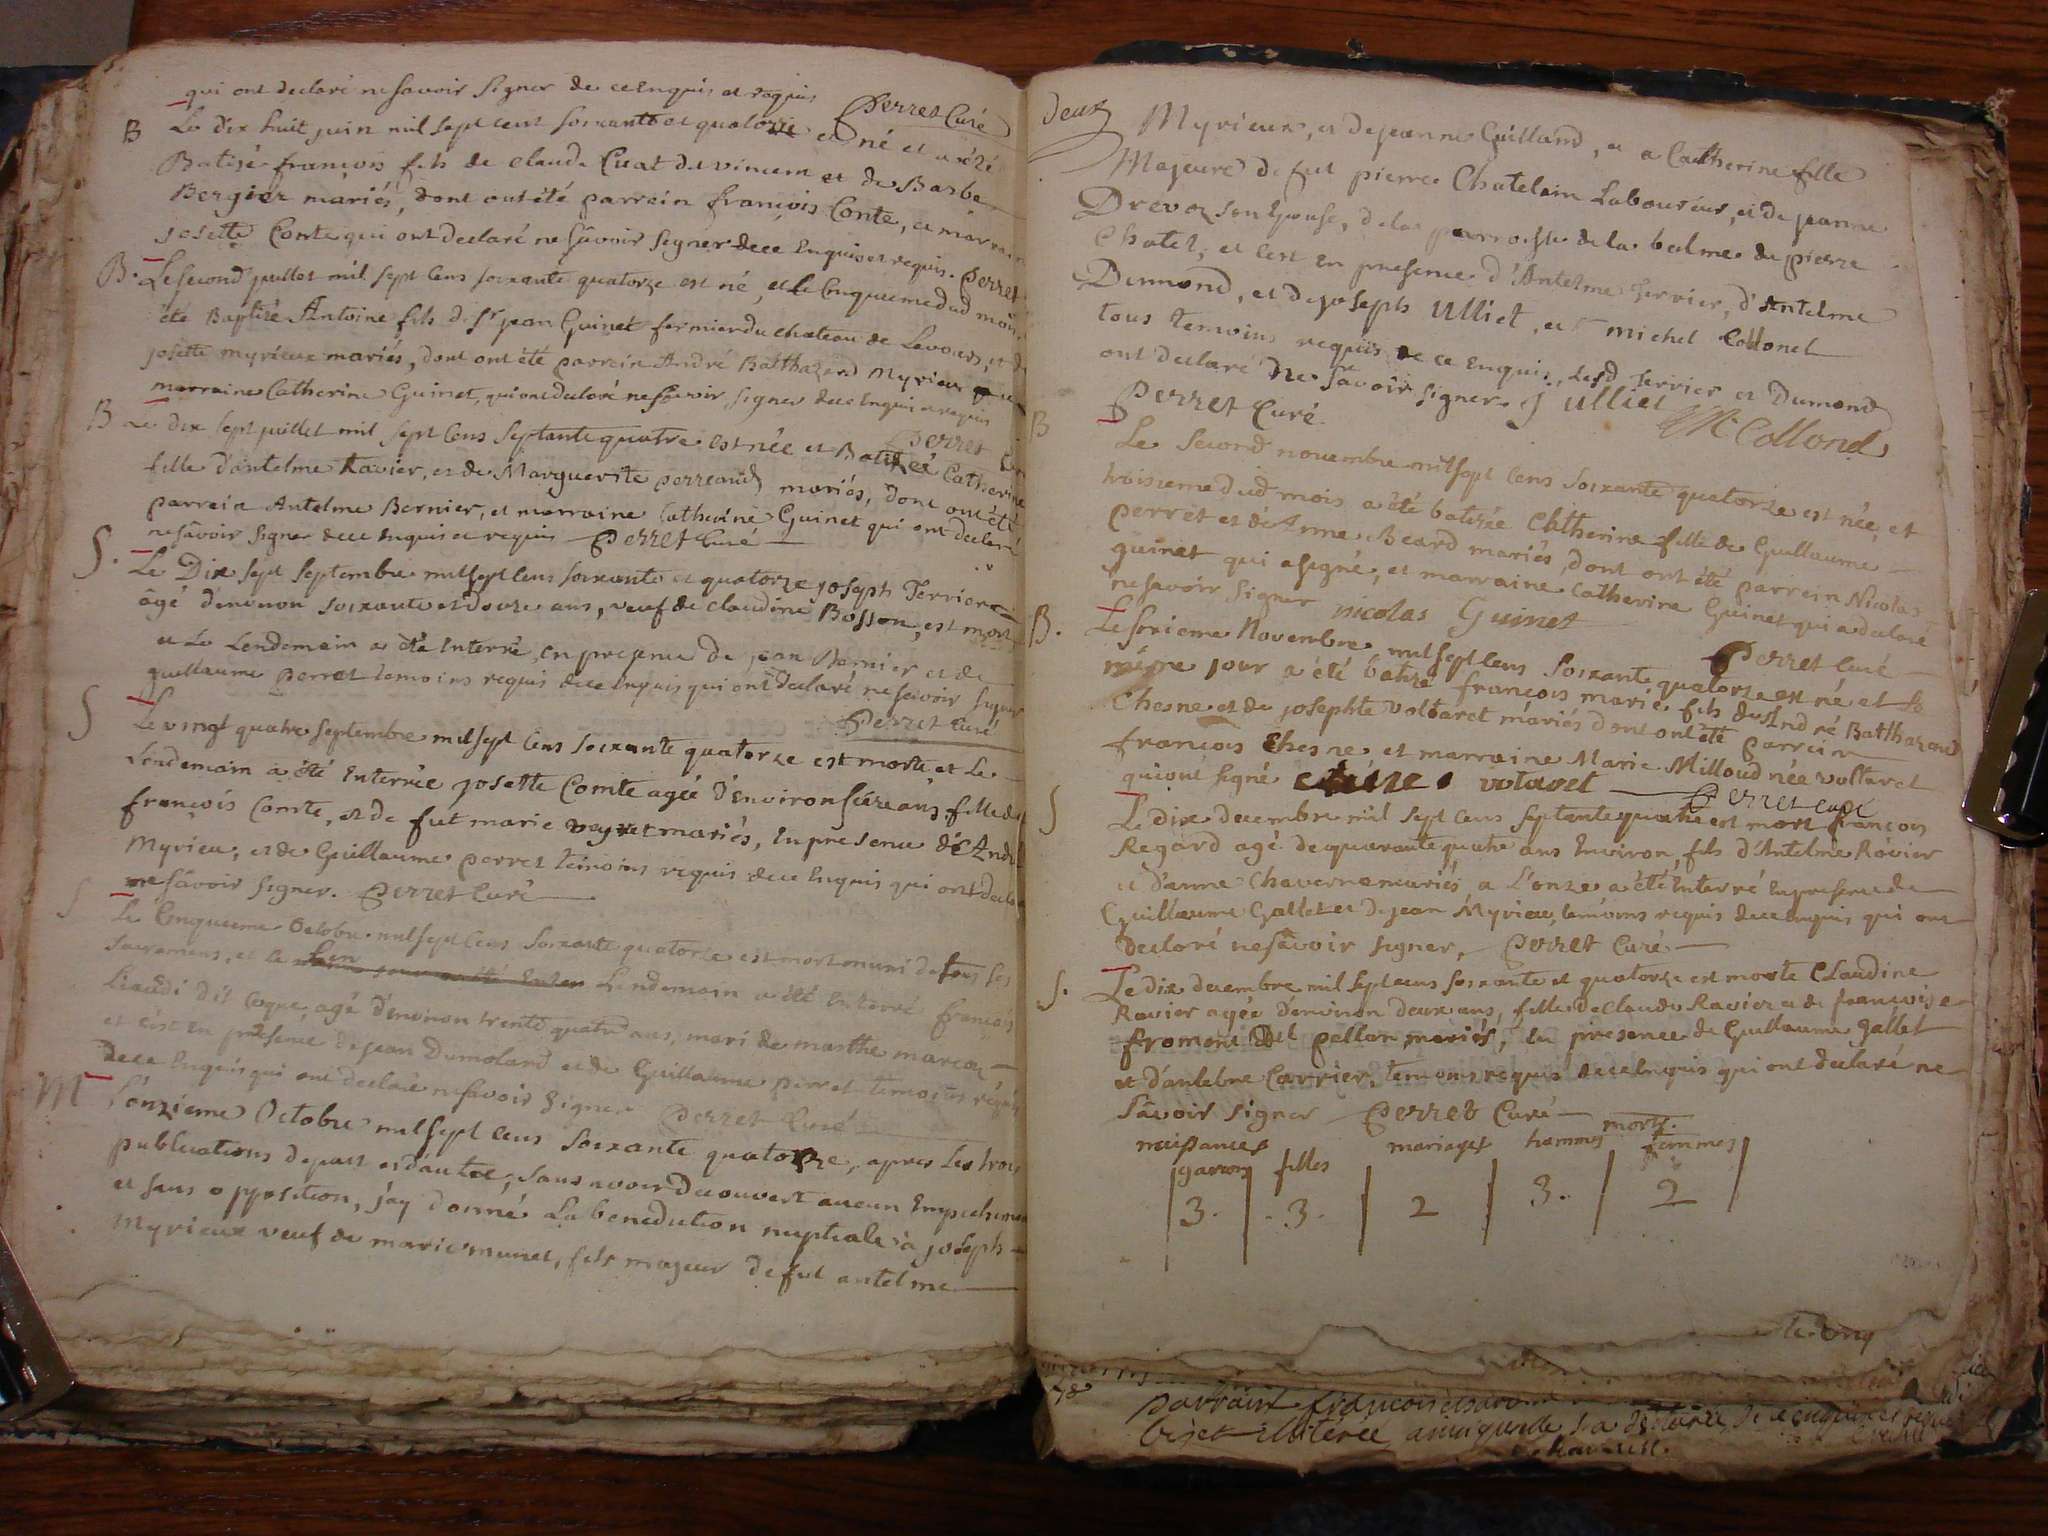 qui ont declaré ne savoir signer de ce enquis et requis
Perret Curé
B Le dix huit juin mil sept cent soixante et quatorze est né et a été
Batisé françois fils de claude Cuat du vincent et de Barbe
Bergier mariés, dont ont été parrein françois Conte, et marraine
josette Conte qui ont declaré ne sâvoir signer de ce enquis et requis. Perret
B. Le second juillet mil sept cens soixante quatorze est né, et le cinquieme dud mois
été Baptisé Antoine fils de Sr jean Guinet fermier du chateau de Lavours, et de
josette myrieux mariés, dont ont été parrein André Balthazard Myrieux
marraine Catherine Guinet, qui ont declaré ne sçavoir signer de ce enquis et requis
Perret
B Le dix sept juillet mil sept cens septante quatre est née et Batisée Catherine
fille d'antelme Ravier, et de Marguerite perreaud mariés, dont ont été
parrein Antelme Bernier, et marraine Catherine Guinet qui ont declaré
ne sâvoir signer de ce enquis et requis Perret Curé
S. Le Dix sept septembre mil sept cens soixante et quatorze joseph Terrier
âgé d'environ soixante et douze ans, veuf de claudine Bosson, est mort
et Le Lendemain a été Interré en presence de jean Bernier et de
guillaume perret temoins requis de ce enquis qui ont declaré ne savoir signer
Perret Curé
S Le vingt quatre septembre mil sept cens soixante quatorze est morte et Le
Lendemain a été Interrée josette Comte agée d'environ seize ans, fille de
françois Comte, et de fut marie veyret mariés, en presence d'André
Myrieu, et de Guillaume perret temoins requis de ce enquis qui ont declaré
ne sâvoir signer. Perret Curé
S Le Cinquieme octobre mil sept cens soixante quatorze est mort muni de tous ses
sacremens, et le Lendemain a été Interré françois
Liaudi dit Coque, agé d'environ trente quatre ans, mari de marthe marcoz
et c'est en présence de jean Dumoland et de Guillaume perret temoins requis
de ce enquis qui ont declaré ne savoir signer Perret Curé
M L'onzieme Octobre mil sept cens soixante quatorze, apres Les trois
publications de part et d'autre, sans avoir decouvert aucun Empechement
et sans opposition, j'ay donné La benediction nuptiale à joseph
Myrieux veuf de marie munet, fils majeur de fut antelme
deux
Myrieux, et de jeanne Guilland, et a Catherine fille
Majeure de fut pierre Chatelain Laboureur, et de jeanne
Drevoz son Epouse, de la parroisse de la balme de pierre
Chatel, et c'est en presence d'Antelme Terrier, d'Antelme
Dumond, et de joseph Ulliet, et Sr michel Collonel
tous temoins requis de ce enquis, Lesd Terrier et Dumond
ont declaré ne sçavoir signer. J ulliet
Perret Curé. M Collond
B Le second novembre mil sept cens soixante quatorze est née, et
troisieme dud mois a été batisée Catherine fille de Guillaume
perret et de Anne Beard mariés, dont ont été parrein Nicolas
guinet qui a signé, et marraine Catherine Guinet qui a declaré
ne savoir signer nicolas Guinet
Perret Curé
B. Le sixieme Novembre mil sept cens soixante quatorze est né et le
même jour a été batisé françois marie fils de André Balthazard
Chesne et de josephte Voltaret mariés dont ont été parrein
françois Chesne et marraine Marie Milloud née voltaret
qui ont signé votaret Perret curé
S Le dix decembre mil sept cens septante quatre est mort françois
Regard agé de quarante quatre ans Environ, fils d'Antelme Ravier
et d'anne Chaverne mariés, a L'onze a été Interré en presence de
Guillaume Gallet et de jean Myrieu, temoins requis de ce enquis qui ont
declaré ne sâvoir signer, Perret Curé
S. Le dix decembre mil sept cens soixante et quatorze est morte Claudine
Ravier agée d'environ deux ans, fille de Claude Ravier et de françoise
froment dit pellon mariés, en presence de Guillaume gallet
et d'antelme Carrier, temoins requis de ce enquis qui ont declaré ne
sâvoir signer Perret Curé
morts.
naissances mariages hommes femmes
garcons filles
3. 3. 2 3. 2
parrain françois